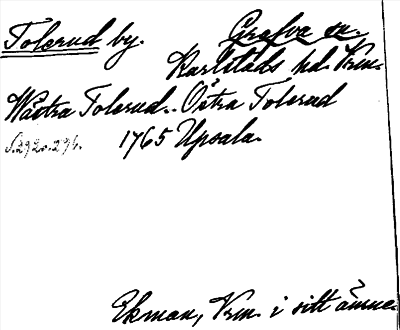 Tolerud by. Grafva sn.
Karlstads hd. Vrm.
Västra Tolerud. Östra Tolerud
S. 292 o. 296. 1765 Upsala.
Ekman, Vrm. i sitt ämne